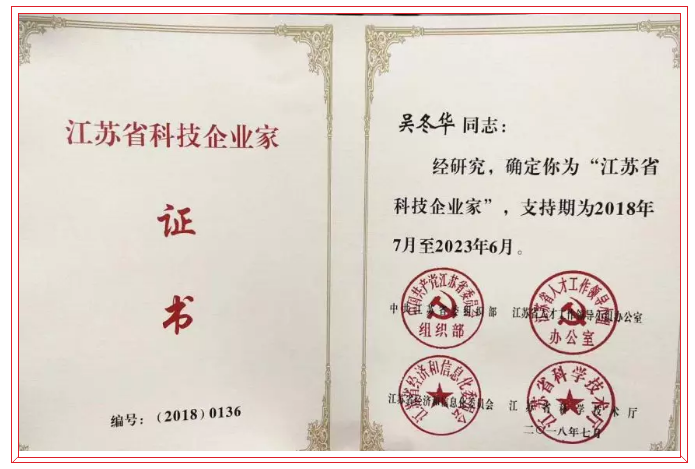 江苏省科技企业家
证
书
编号：（2018）0136
吴冬华 同志：
经研究，确定你为“江苏省
科技企业家”，支持期为2018年
7月至2023年6月。
中共江苏省委组织部
江苏省人才工作领导小组办公室
组织部
办公室
江苏省经济和信息化委员会
江苏省科学技术厅
二〇一八年七月